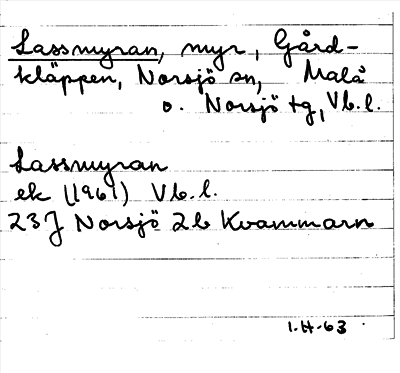 Lassmyran, myr, Gård-
kläppen, Norsjö sn, Malå
o. Norsjö tg, Vb.l.
Lassmyran
ek (1961) Vb.l.
23J Norsjö 2b Kvammarn
1.H-63